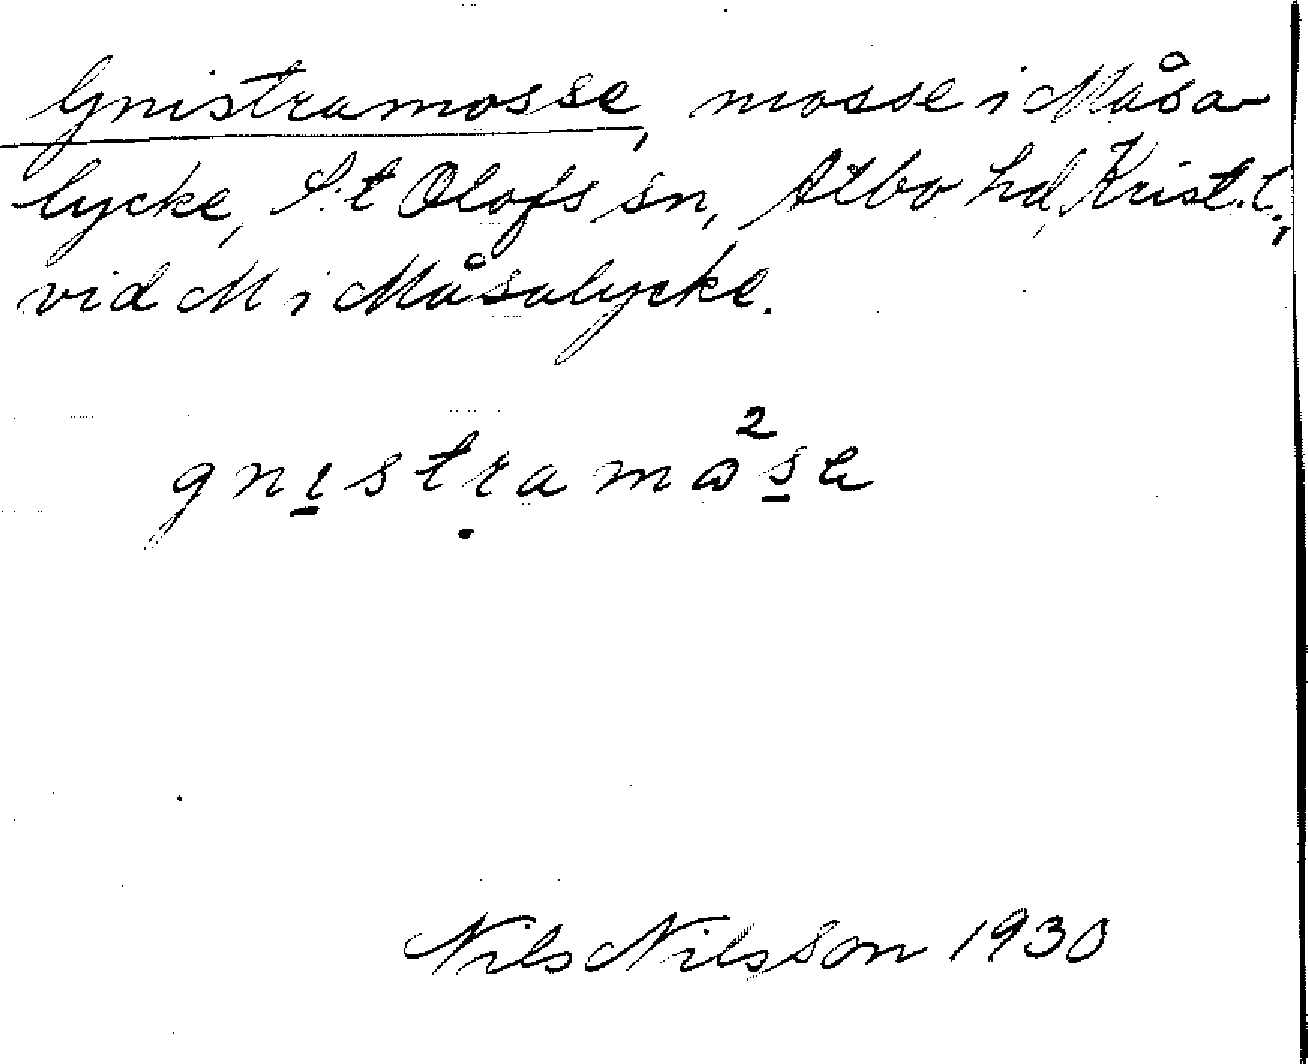 Gnistramosse, mosse i Måsa-
lycke, S:t Olofs sn, Albo hd, Krist. l.,
vid M i Måsalycke.
gnıstramɷ²se
Nils Nilsson 1930